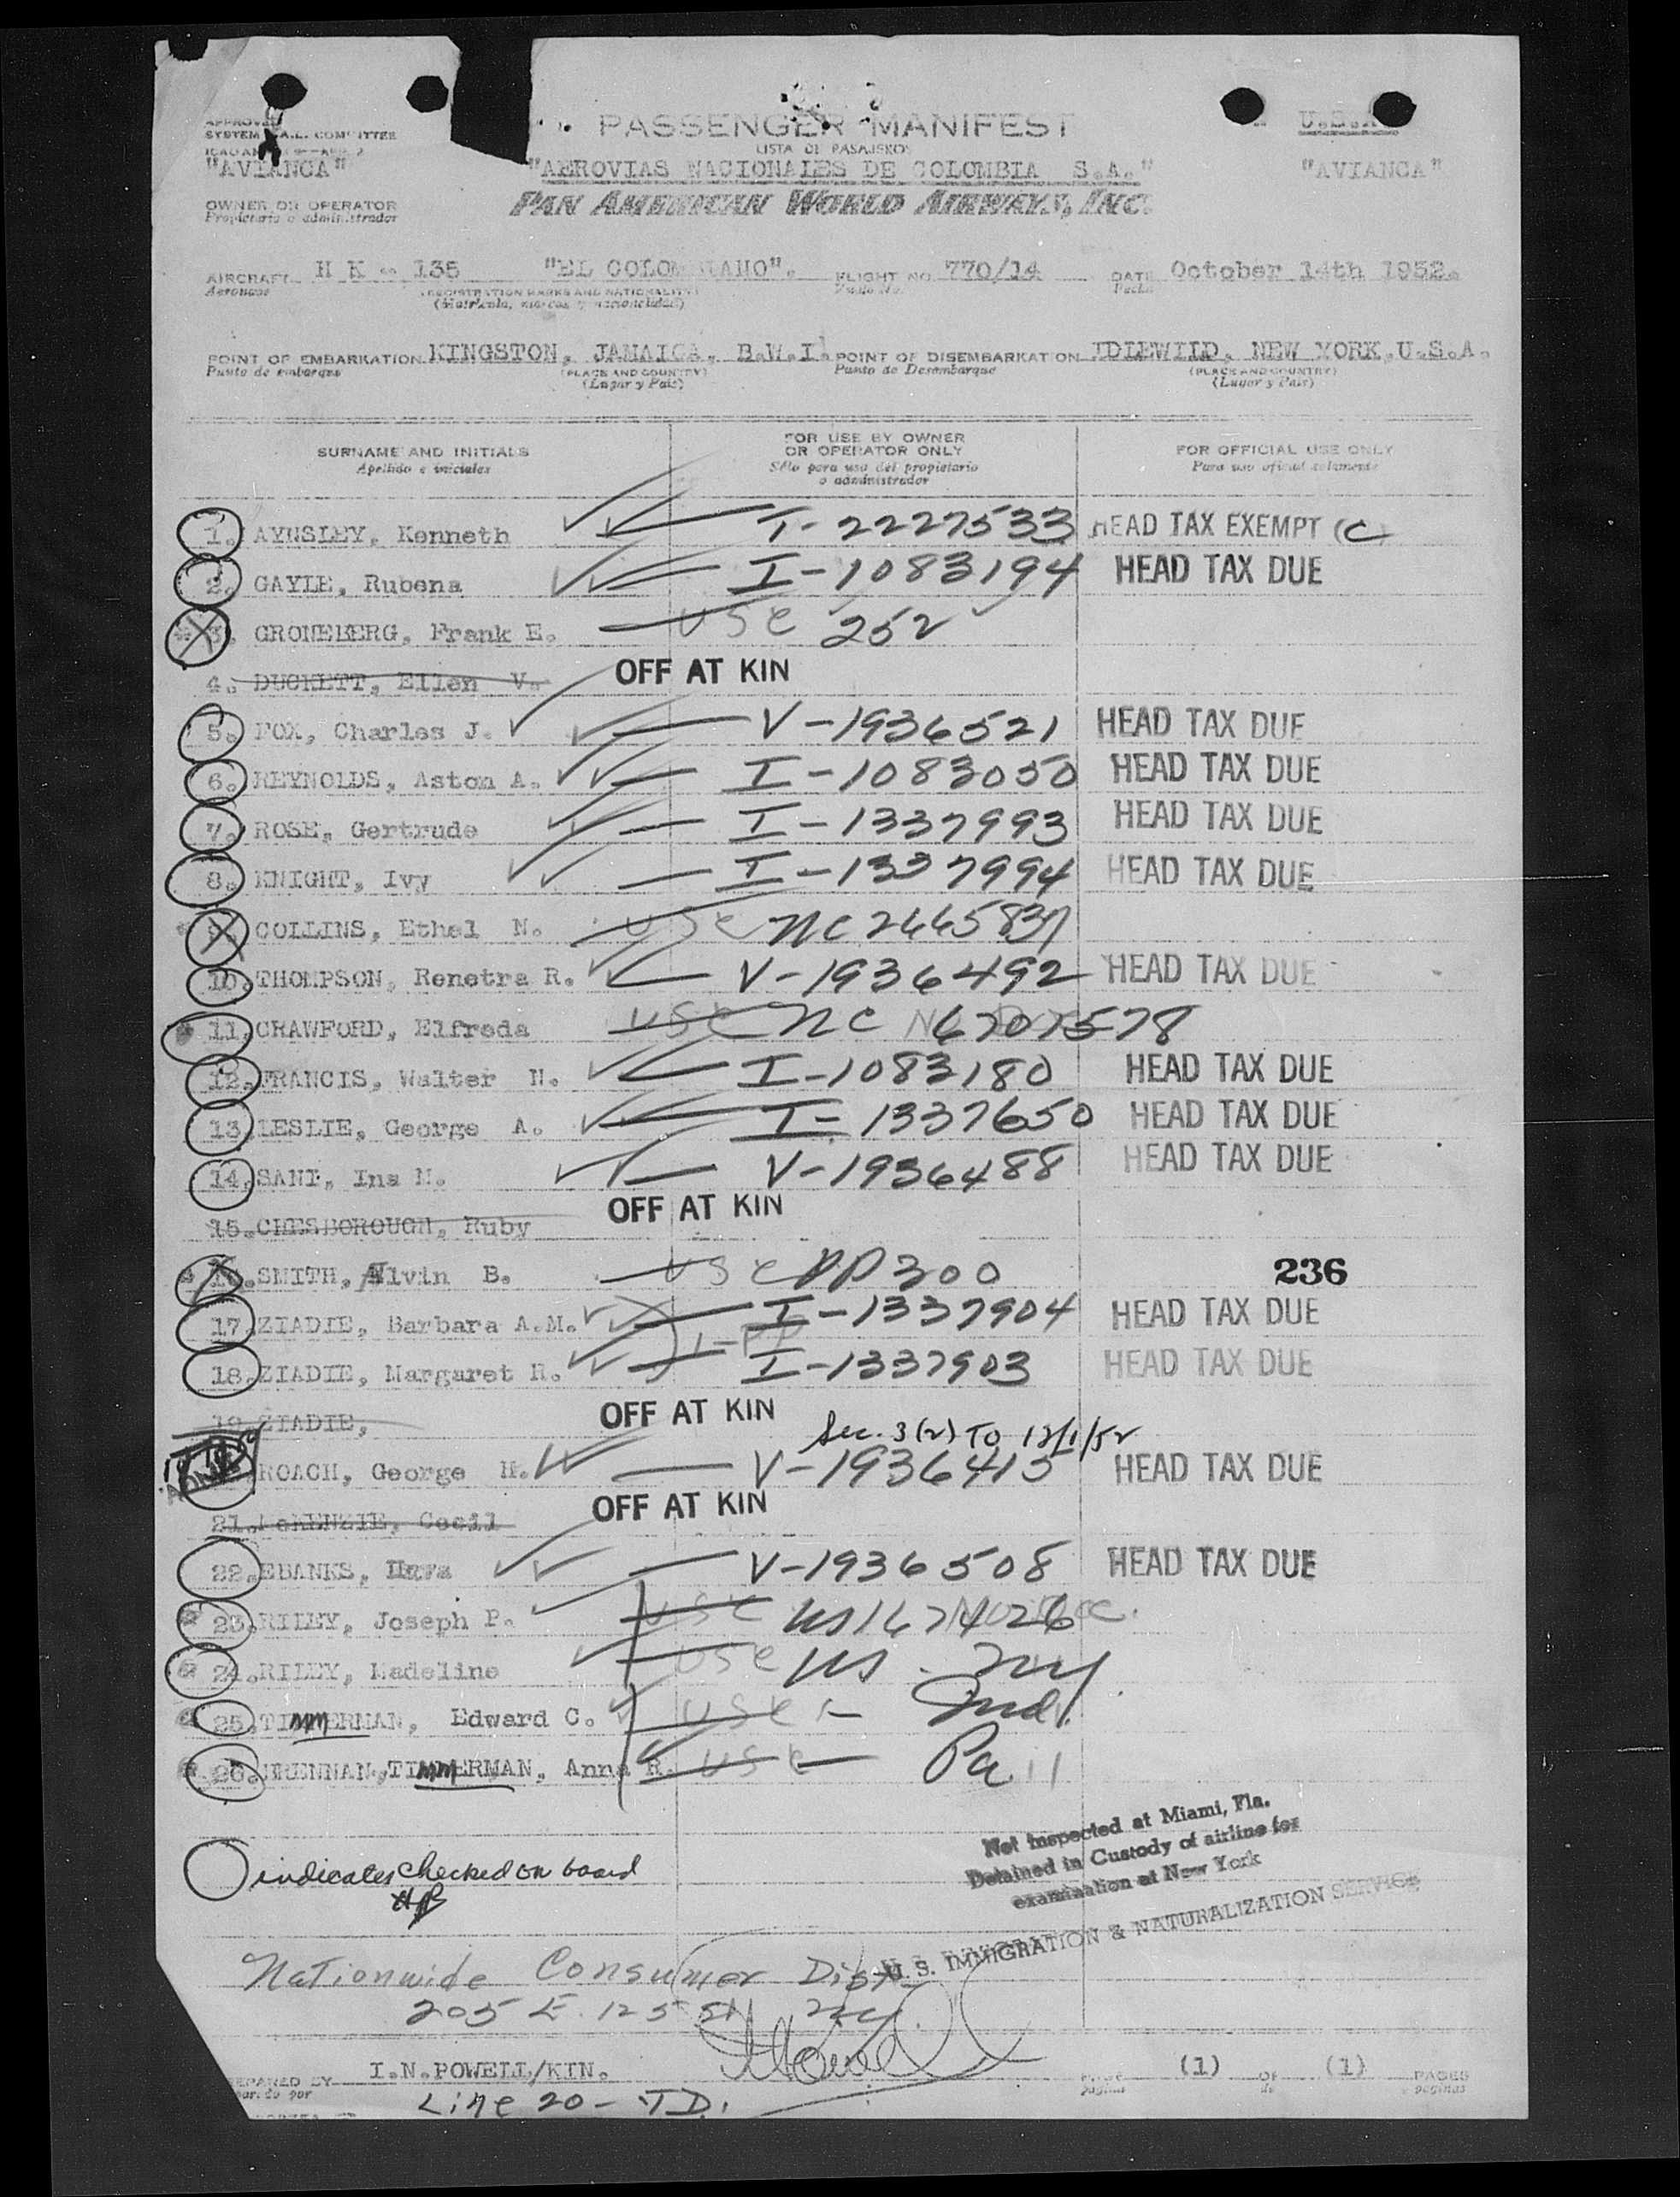 PASSENGER MANIFEST U.S.A
APPROVED
SYSTEM COMMITTEE
LISTA DE PASAJEROS
"AVIANCA" "AEROVIAS NACIONALES DE COLOMBIA S.A." "AVIANCA"
OWNER OR OPERATOR PAN AMERICAN WORLD AIRWAYS, INC.
Propietario o administrador
AIRCRAFT H K - 135 "EL COLOMBIANO". FLIGHT NO. 770/14 DATE October 14th 1952.
Aeronave (REGISTRATION MARKS AND NATIONALITY) Vuelo No. Fecha
(Matricula, marcas y nacionalidad)
POINT OF EMBARKATION KINGSTON, JAMAICA, B.W.I. POINT OF DISEMBARKATION IDLEWILD, NEW YORK, U.S.A.
Punto de embarque (PLACE AND COUNTRY) Punto de Desembarque (PLACE AND COUNTRY)
(Lugar y Pais) (Lugar y Pais)
SURNAME AND INITIALS FOR USE BY OWNER OR OPERATOR ONLY FOR OFFICIAL USE ONLY
Apellido e iniciales Sólo para uso del propietario o administrador Para uso oficial solamente
1. AYNSLEY, Kenneth T-2227533 HEAD TAX EXEMPT (C)
2. GAYLE, Rubena I-1083194 HEAD TAX DUE
3. GRONEBERG, Frank E. USC 252
4. DUCKETT, Ellen V. OFF AT KIN
5. FOX, Charles J. V-1936521 HEAD TAX DUE
6. REYNOLDS, Aston A. I-1083050 HEAD TAX DUE
7. ROSE, Gertrude I-1337993 HEAD TAX DUE
8. KNIGHT, Ivy I-1337994 HEAD TAX DUE
COLLINS, Ethel N. USC NC 2665837
10. THOMPSON, Renetra R. V-1936492 HEAD TAX DUE
11. CRAWFORD, Elfreda USC NC 6707578
12. FRANCIS, Walter N. I-1083180 HEAD TAX DUE
13. LESLIE, George A. I-1337650 HEAD TAX DUE
14. SANT, Ina M. V-1936488 HEAD TAX DUE
15. CHESBOROUGH, Ruby OFF AT KIN
16. SMITH, Alvin B. USC PP 300 236
17. ZIADIE, Barbara A.M. I-1337904 HEAD TAX DUE
1-PP
18. ZIADIE, Margaret R. I-1337903 HEAD TAX DUE
19. ZIADIE, OFF AT KIN
Sec. 3(2) TO 12/1/52
ROACH, George H. V-1936415 HEAD TAX DUE
21. McKENZIE, Cecil OFF AT KIN
22. EBANKS, V-1936508 HEAD TAX DUE
23. RILEY, Joseph P. USC
24. RILEY, Madeline USC NY
25. TIMMERMAN, Edward C. USC - Ind.
26. BRENNAN, TIMMERMAN, Anna R. USC - Pa.
Not inspected at Miami, Fla.
Detained in Custody of airline for
examination at New York
U. S. IMMIGRATION & NATURALIZATION SERVICE
indicates checked on board
Nationwide Consumer Dist
205 E. 125 St NY.
PREPARED BY I.N.POWELL/KIN. PAGE (1) OF (1) PAGES
Preparado por página de páginas
Line 20 - T.D.